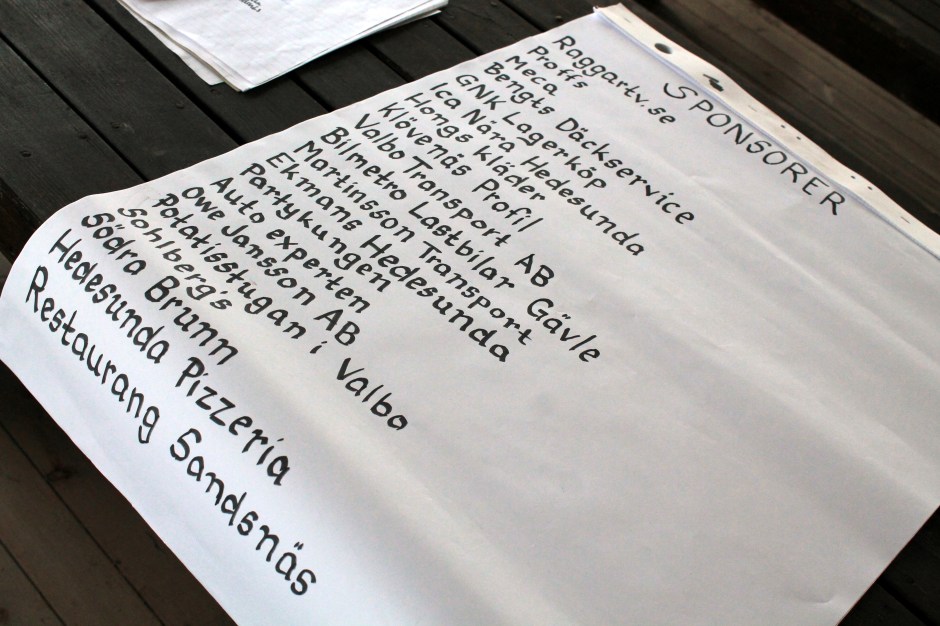 SPONSORER
Raggartv.se
Proffs
Meca
Bengts Däckservice
GNK Lagerköp
Ica Nära Hedesunda
Hongs Kläder
Klövenäs Profil
Valbo Transport AB
Bilmetro Lastbilar Gävle
Martinsson Transport
Ekmans Hedesunda
Partykungen
Auto experten
Owe Jansson AB
Potatisstugan i Valbo
Sohlberg's
Södra Brunn
Hedesunda Pizzeria
Restaurang Sandsnäs